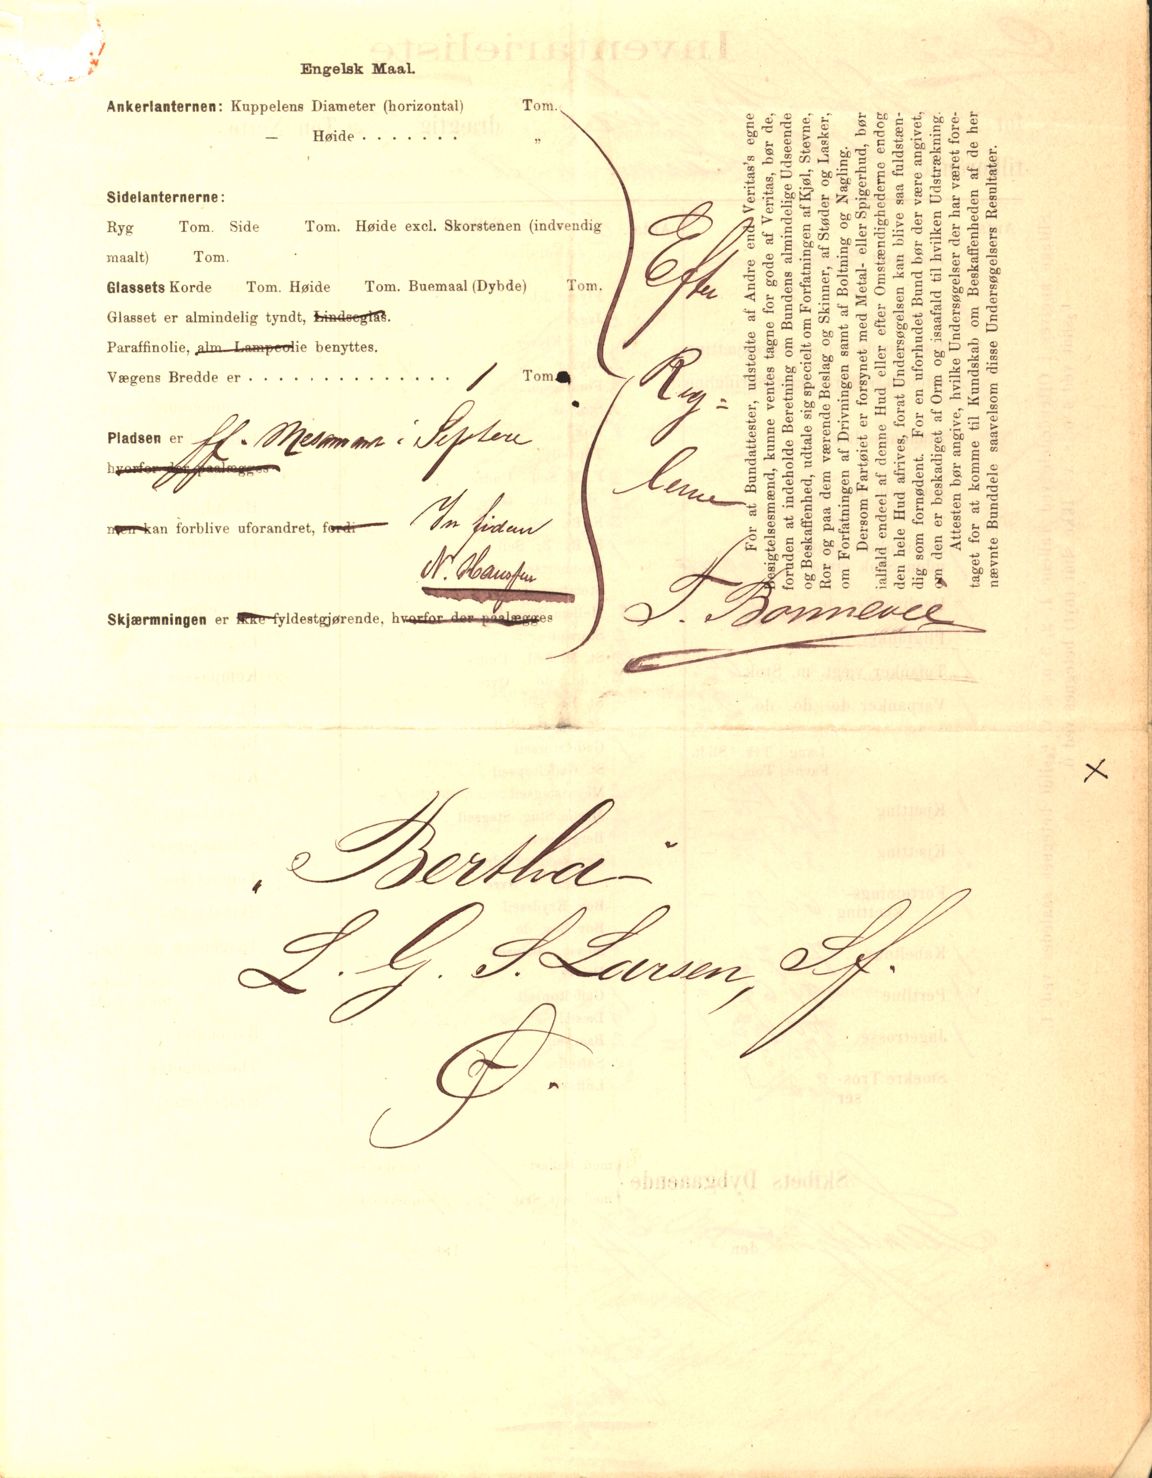 Engelsk Maal.
Ankerlanternen: Kuppelens Diameter (horizontal) Tom.
— Høide . . . . . . . „
Sidelanternerne:
Ryg Tom. Side Tom. Høide excl. Skorstenen (indvendig
maalt) Tom.
Glassets Korde Tom. Høide Tom. Buemaal (Dybde) Tom.
Glasset er almindelig tyndt, Lindseglas.
Paraffinolie, alm. Lampeolie benyttes.
Vægens Bredde er . . . . . . . . . . . . . . . 1 Tom.
Pladsen er ff. Mesanmast i
hvorfor der paalægges
men kan forblive uforandret, fordi
N. Hanssen
Skjærmningen er ikke fyldestgjørende, hvorfor der paalægges
Efter
Reg=
lerne
T. Bonnevie
For at Bundattester, udstedte af Andre end Veritas's egne
Besigtelsesmænd, kunne ventes tagne for gode af Veritas, bør de,
foruden at indeholde Beretning om Bundens almindelige Udseende
og Beskaffenhed, udtale sig specielt om Forfatningen af Kjøl, Stevne,
Ror og paa dem værende Beslag og Skinner, af Støder og Lasker,
om Forfatningen af Drivningen samt af Boltning og Nagling.
Dersom Fartøiet er forsynet med Metal- eller Spigerhud, bør
ialfald endeel af denne Hud eller efter Omstændighederne endog
den hele Hud afrives, forat Undersøgelsen kan blive saa fuldstæn-
dig som fornødent. For en uforhudet Bund bør der være angivet,
om den er beskadiget af Orm og isaafald til hvilken Udstrækning.
Attesten bør angive, hvilke Undersøgelser der har været fore-
taget for at komme til Kundskab om Beskaffenheden af de her
nævnte Bunddele saavelsom disse Undersøgelsers Resultater.
„Bertha"
L. G. S. Larsen, Sf.